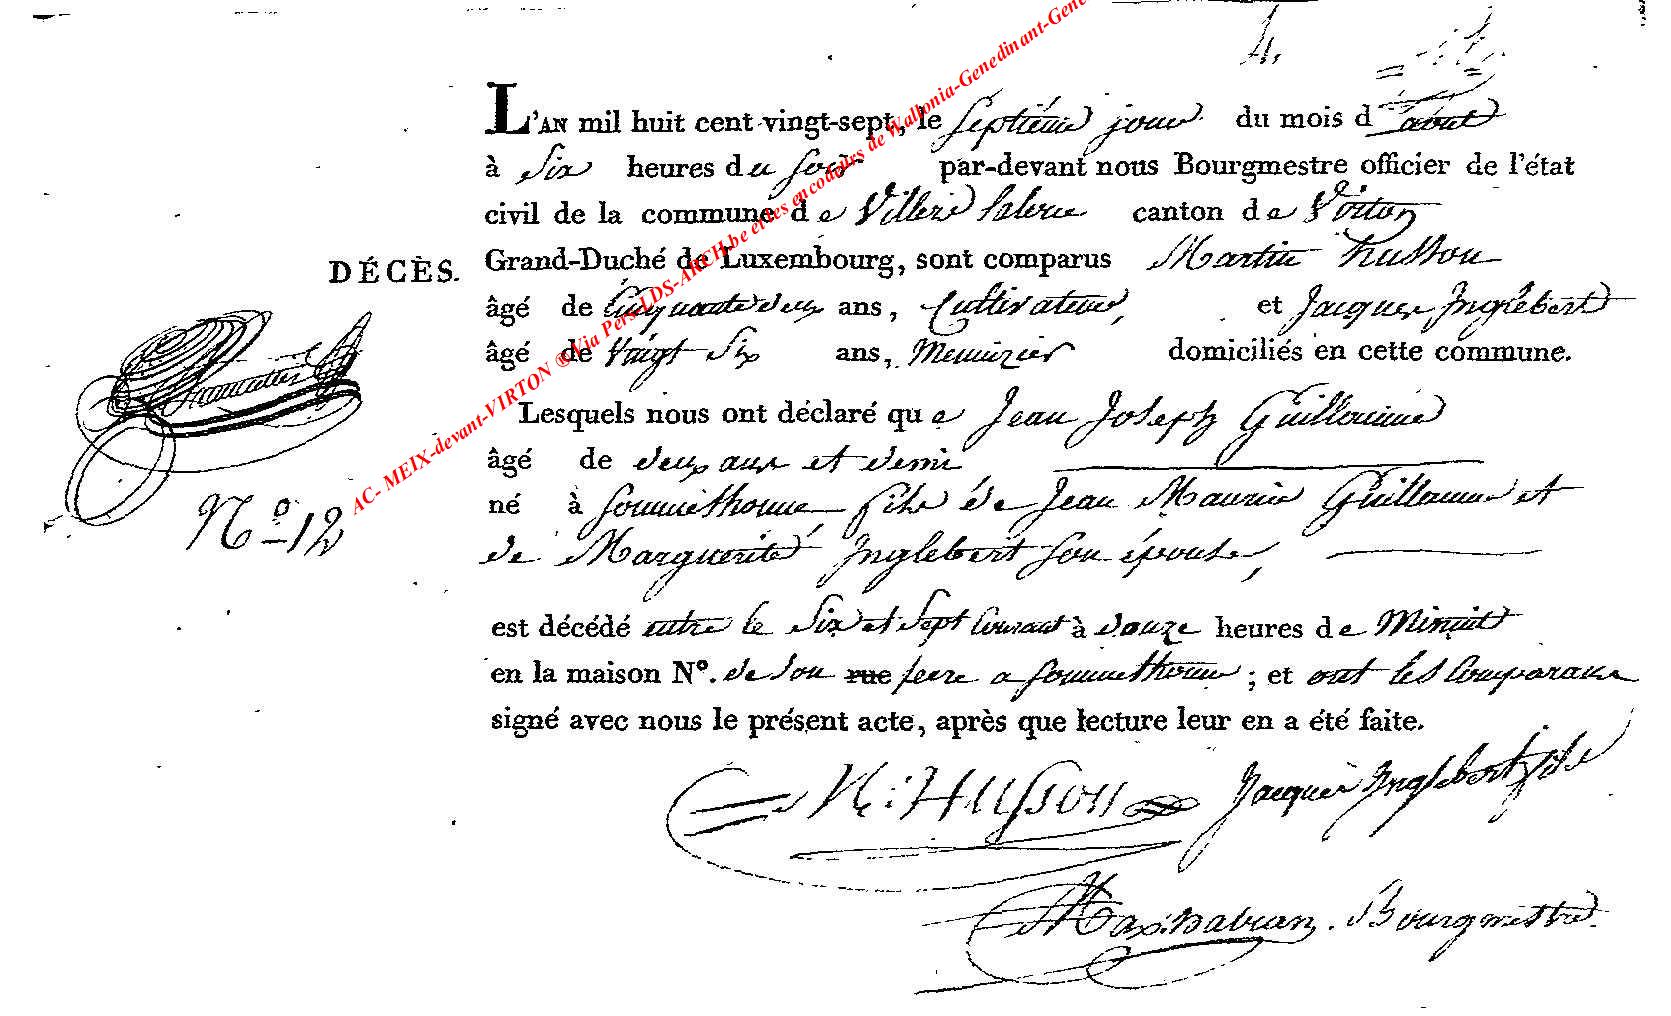 4.
L'AN mil huit cent vingt-sept, le Septiême jour du mois d'aout
à Six heures du Soir par-devant nous Bourgmestre officier de l'état
civil de la commune de Villers laloue canton de Virton
DÉCÈS. Grand-Duché de Luxembourg, sont comparus Martin husson
âgé de Cinquante deux ans, Cultivateur, et Jacques Inglebert
âgé de Vingt Six ans, Menuizier domiciliés en cette commune.
Lesquels nous ont déclaré que Jean Joseph Guillaume
âgé de deux ans et demi
né à Sommethonne, fils de Jean Guillaume et
de Marguerite Inglebert Son épouse,
N° 12
est décédé entre le Six et Sept Courant à douze heures de Minuit
en la maison N°. de Son rue pere a Sommethonne ; et ont les Comparans
signé avec nous le présent acte, après que lecture leur en a été faite.
Husson Jacques Inglebert fils
Bourgmestre.
AC- MEIX-devant-VIRTON ® Via Pers-LDS-ARCH.be et les encodeurs de Wallonia-Genedinant-Gene